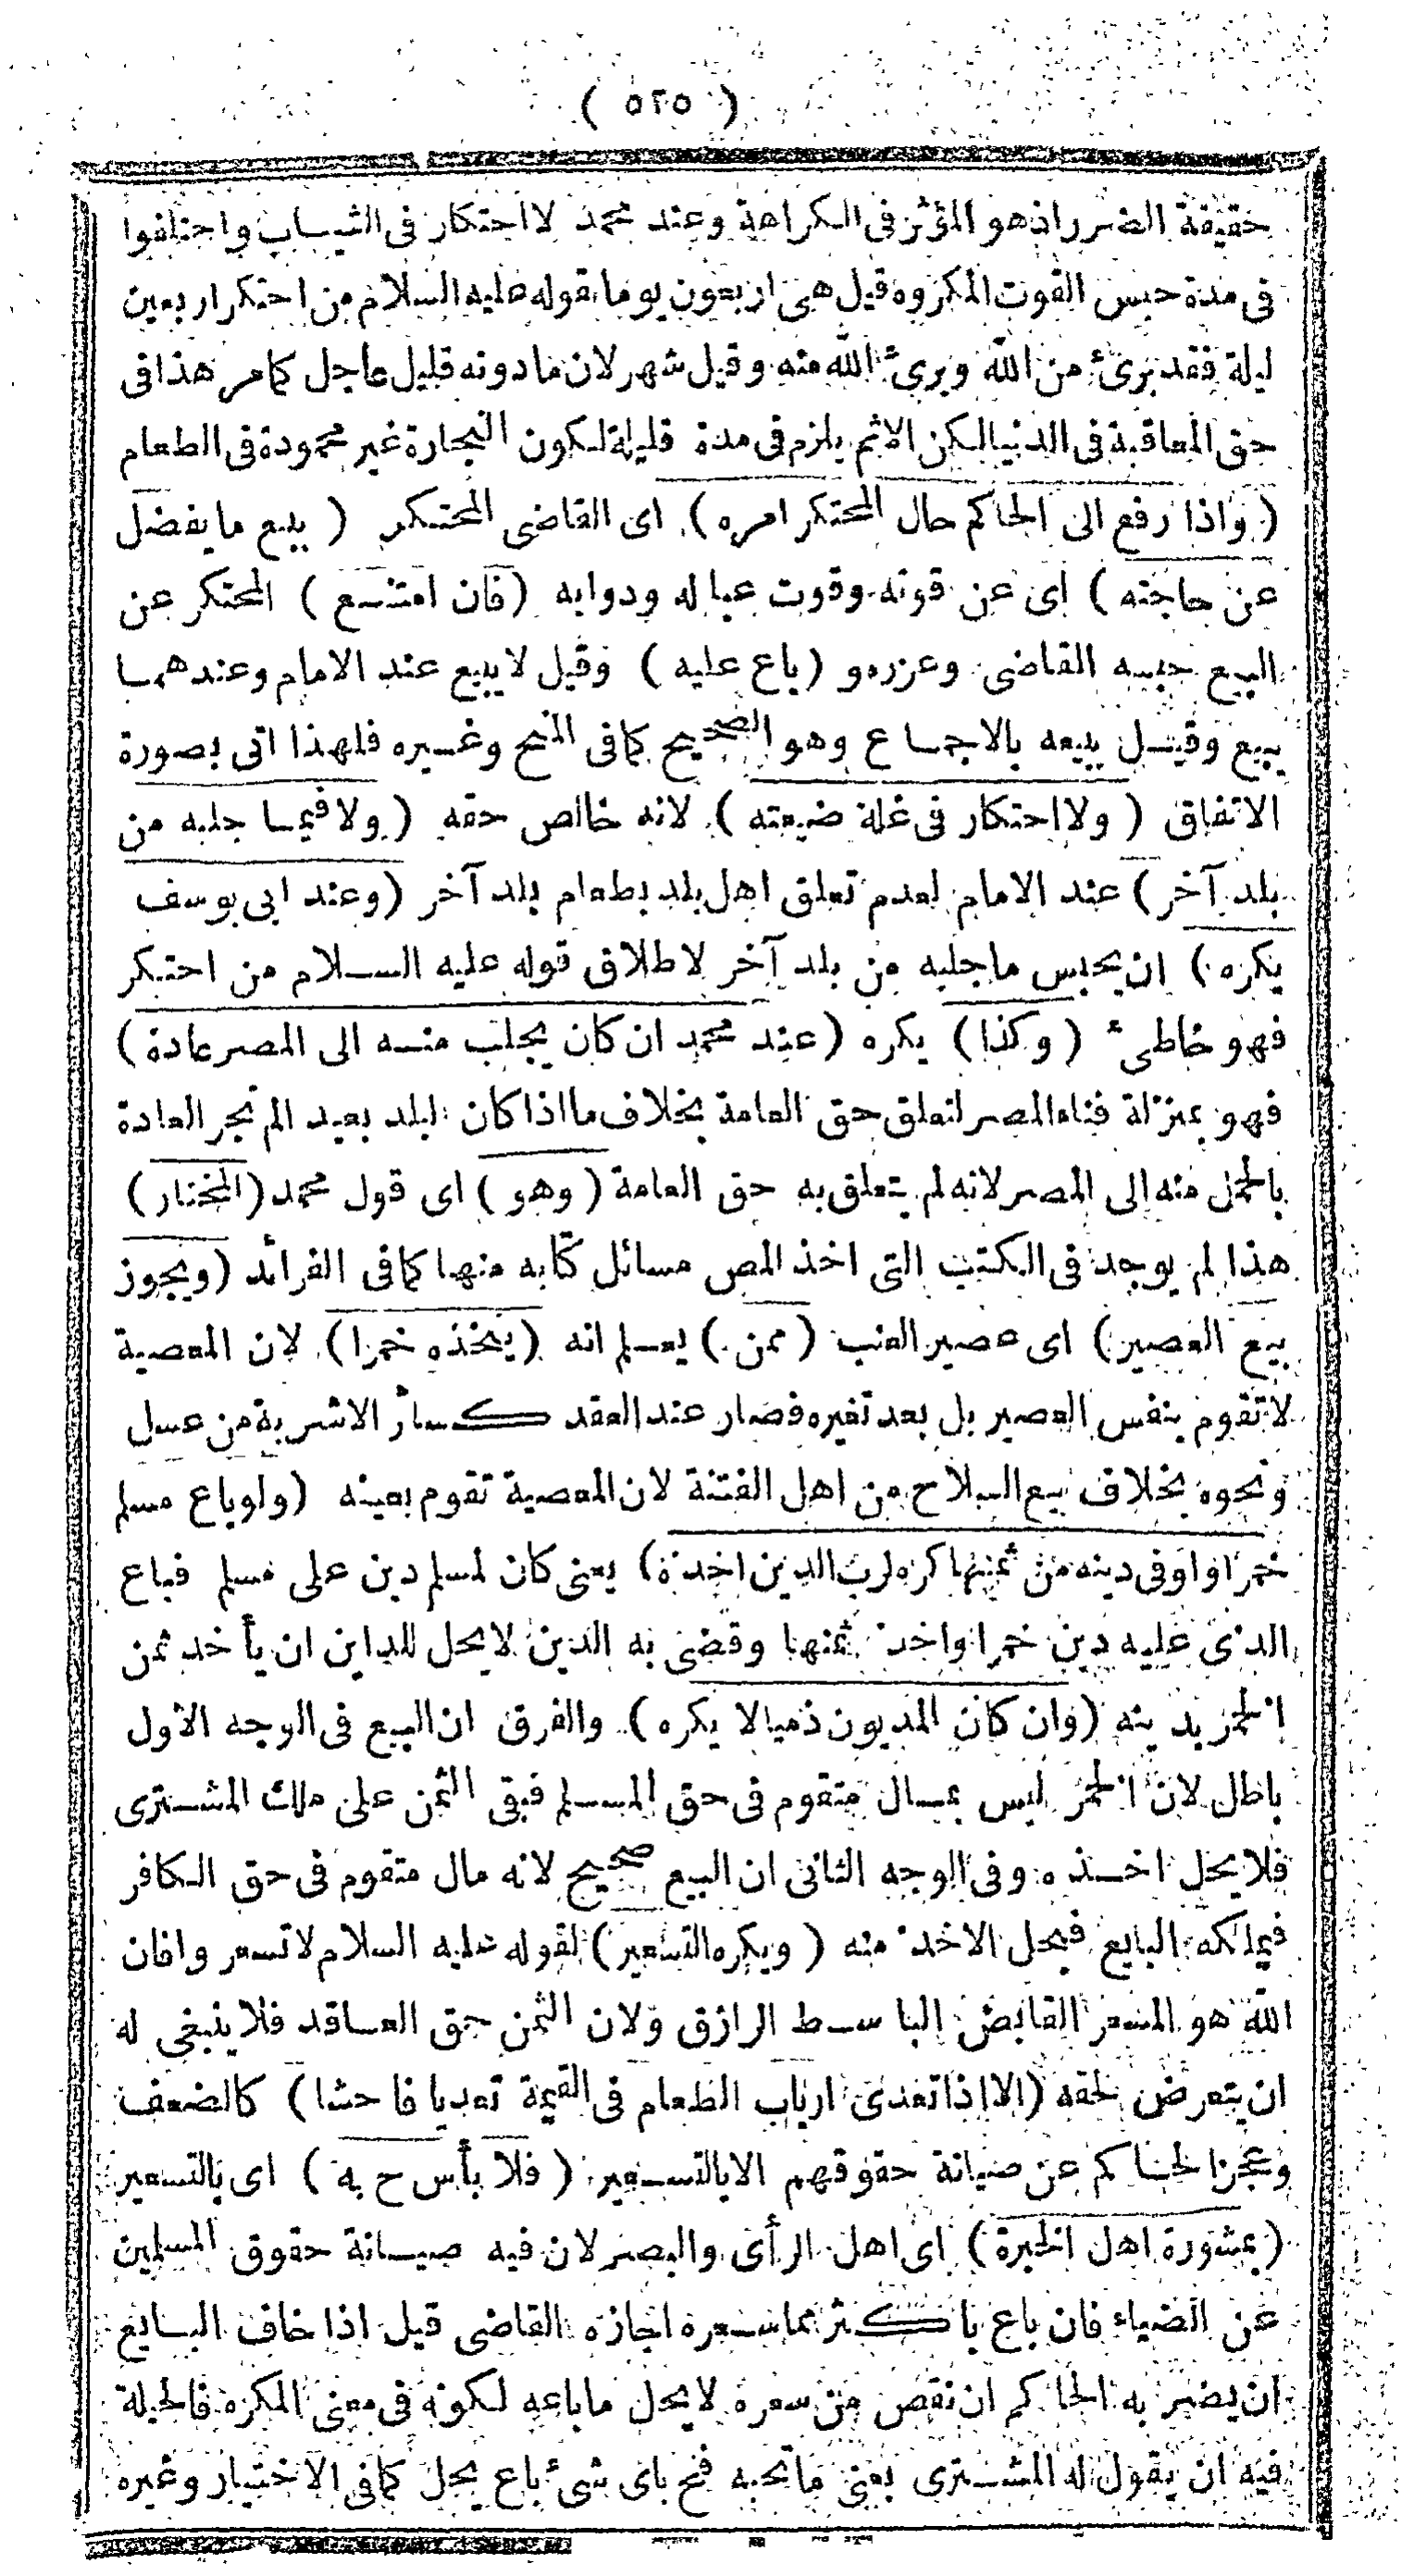 ( ٥٢٥ )
حقيقة الضرر اذ هو المؤثر فى الكراهة وعند محمد لا احتكار فى الثيساب واختلفوا
فى مدة حبس القوت المكروه قيل هى اربعون يوما لقوله عليه السلام من احتكر اربعين
ليلة فقد برئ من الله وبرئ الله منه وقيل شهر لان مادونه قليل عاجل كمامر هذا فى
حق المعاقبة فى الدنيا لكن الاثم يلزم فى مدة قليلة لكون التجارة غير محمودة فى الطعام
( واذا رفع الى الحاكم حال المحتكر امره ) اى القاضى المحتكر ( ببيع ما يفضل
عن حاجته ) اى عن قوته وقوت عياله ودوابه ( فان امتنع ) المحتكر عن
البيع حبسه القاضى وعزره و ( باع عليه ) وقيل لا يبيع عند الامام وعندهما
يبيع وقيل يبيعه بالاجماع وهو الصحيح كما فى المنح وغيره فلهذا اتى بصورة
الاتفاق ( ولا احتكار فى غلة ضيعته ) لانه خالص حقه ( ولا فيما جلبه من
بلد آخر ) عند الامام لعدم تعلق اهل بلد بطعام بلد آخر ( وعند ابى يوسف
يكره ) ان يحبس ماجلبه من بلد آخر لاطلاق قوله عليه السلام من احتكر
فهو خاطئ ( وكذا ) يكره ( عند محمد ان كان يجلب منه الى المصر عادة )
فهو بمنزلة فناء المصر لتعلق حق العامة بخلاف ما اذا كان البلد بعيدا لم تجر العادة
بالحمل منه الى المصر لانه لم يتعلق به حق العامة ( وهو ) اى قول محمد ( المختار )
هذا لم يوجد فى الكتب التى اخذ المص مسائل كتابه منها كما فى الفرائد ( ويجوز
بيع العصير ) اى عصير العنب ( ممن ) يعلم انه ( يتخذه خمرا ) لان المعصية
لا تقوم بنفس العصير بل بعد تغيره فصار عند العقد كسائر الاشربة من عسل
ونحوه بخلاف بيع السلاح من اهل الفتنة لان المعصية تقوم بعينه ( ولو باع مسلم
خمرا واوفى دينه من ثمنها كره لرب الدين اخذه ) يعنى كان لمسلم دين على مسلم فباع
الذى عليه دين خمرا واخذ ثمنها وقضى به الدين لا يحل للداين ان يأخذ ثمن
الخمر بدينه ( وان كان المديون ذميا لا يكره ) والفرق ان البيع فى الوجه الاول
باطل لان الخمر ليس بمال متقوم فى حق المسلم فبقى الثمن على ملك المشترى
فلا يحل اخذه وفى الوجه الثانى ان البيع صحيح لانه مال متقوم فى حق الكافر
فيملكه البايع فيحل الاخذ منه ( ويكره التسعير ) لقوله عليه السلام لا تسعروا فان
الله هو المسعر القابض الباسط الرازق ولان الثمن حق العاقد فلا ينبغى له
ان يتعرض لحقه ( الا اذا تعدى ارباب الطعام فى القيمة تعديا فاحشا ) كالضعف
وعجز الحاكم عن صيانة حقوقهم الا بالتسعير ( فلا بأس ح به ) اى بالتسعير
( بمشورة اهل الخبرة ) اى اهل الرأى والبصر لان فيه صيانة حقوق المسلمين
عن الضياء فان باع باكثر مما سعره اجازه القاضى قيل اذا خاف البايع
ان يضر به الحاكم ان نقص من سعره لا يحل ما باعه لكونه فى معنى المكره فالحيلة
فيه ان يقول له المشترى بعنى ما تحبه فح باى شئ باع يحل كما فى الاختيار وغيره